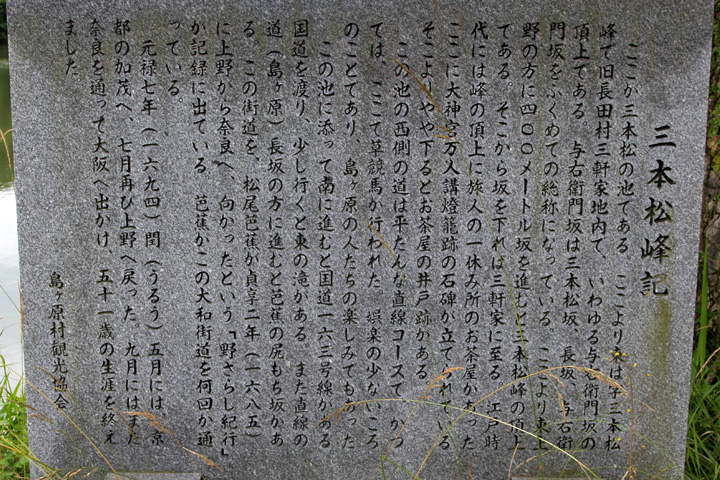 三本松峰記
ここが三本松の池である ここより東は字三本松
峰で旧長田村三軒家地内で、いわゆる与右衛門坂の
頂上である。与右衛門坂は三本松坂、長坂、与右衛
門坂をふくめての総称になっている。ここより東上
野の方に四〇〇メートル坂を進むと三本松峰の頂上
である。そこから坂を下れば三軒家に至る 江戸時
代には峰の頂上に旅人の一休み所のお茶屋があった
ここに大神宮万人講燈籠跡の石碑が立てられている
そこよりやや下るとお茶屋の井戸跡がある。
この池の西側の道は平たんな直線コースで、かつ
ては、ここで草競馬が行われた 娯楽の少ないころ
のことであり、島ヶ原の人たちの楽しみでもあった
この池に添って南に進むと国道一六三号線がある
国道を渡り、少し行くと東の滝がある。また直線の
道（島ヶ原）長坂の方に進むと芭蕉の尻もち坂があ
る。この街道を、松尾芭蕉が貞享二年（一六八五）
に上野から奈良へ、向かったという「野ざらし紀行」
か記録に出ている 芭蕉がこの大和街道を何回か通
っている。
元禄七年（一六九四）閏（うるう）五月には、京
都の加茂へ、七月再び上野へ戻った。九月にはまた
奈良を通って大阪へ出かけ、五十一歳の生涯を終え
ました。
島ヶ原村観光協会